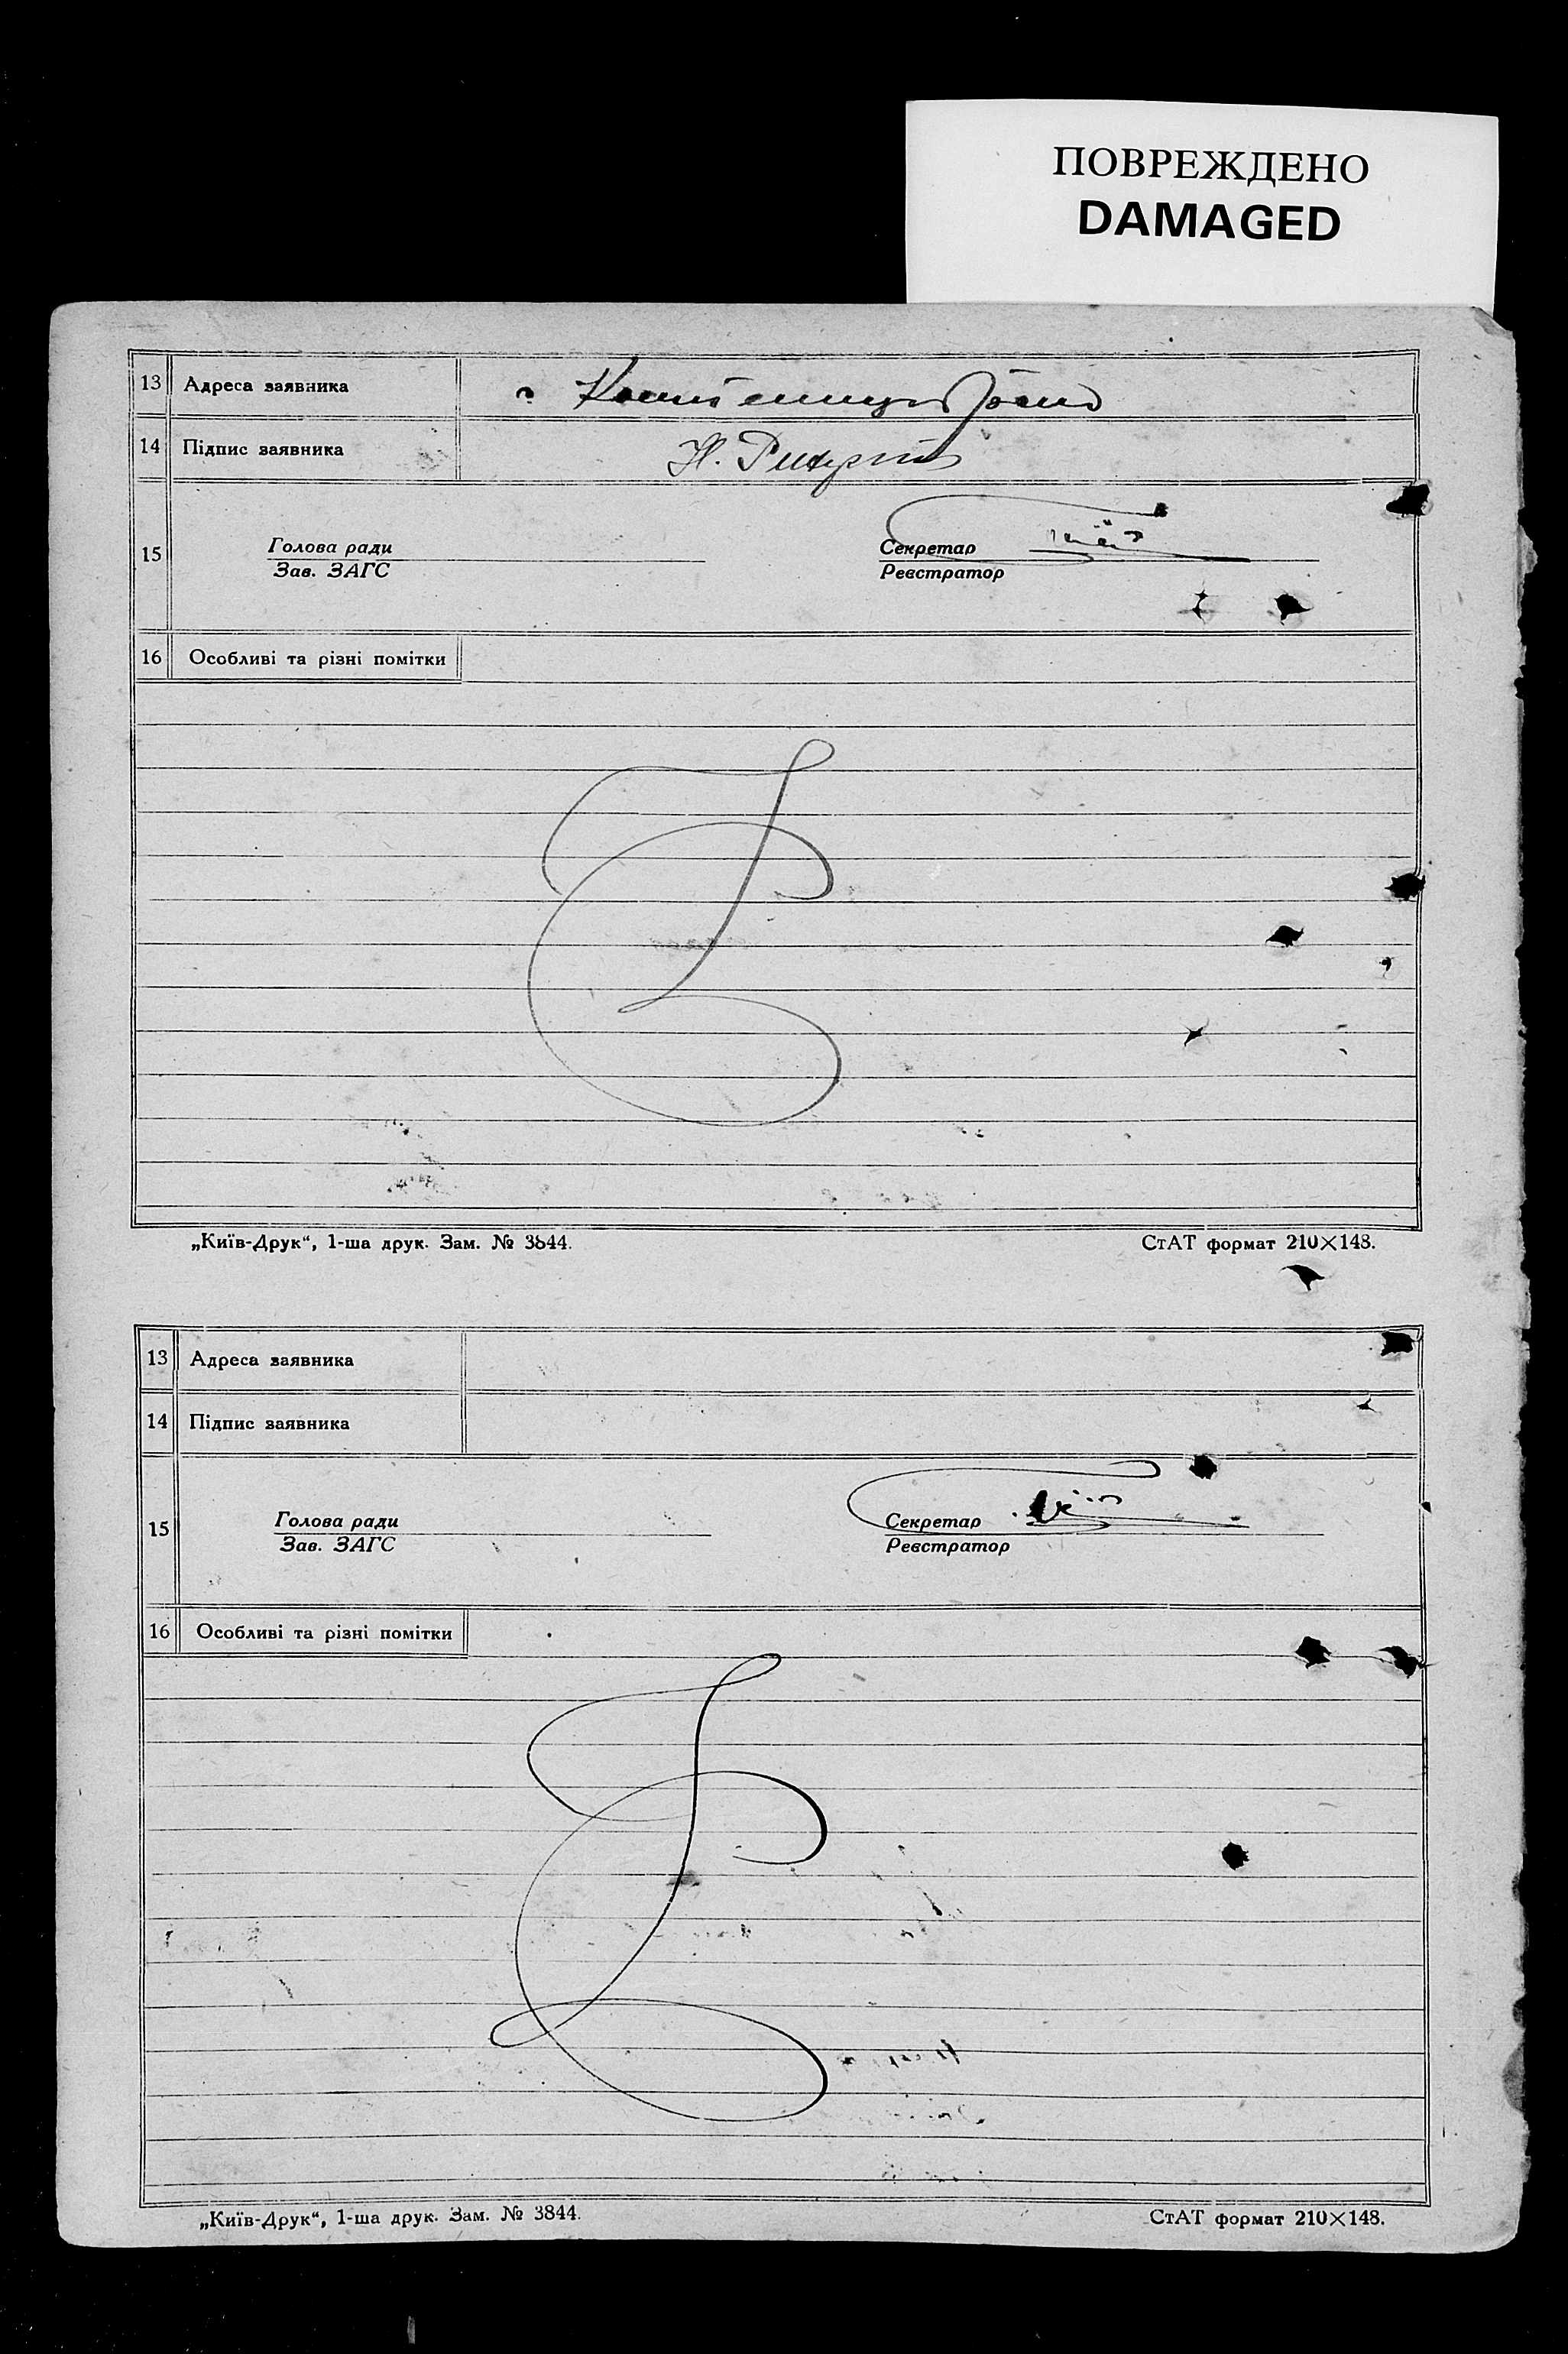 ПОВРЕЖДЕНО
DAMAGED
13 Адреса заявника
14 Підпис заявника Н.
15 Голова ради Секретар
Зав. ЗАГС Реєстратор
16 Особливі та різні помітки
„Київ-Друк“, 1-ша друк. Зам. № 3844. СтАТ формат 210×148.
13 Адреса заявника
14 Підпис заявника
15 Голова ради Секретар
Зав. ЗАГС Реєстратор
16 Особливі та різні помітки
„Київ-Друк“, 1-ша друк. Зам. № 3844. СтАТ формат 210×148.